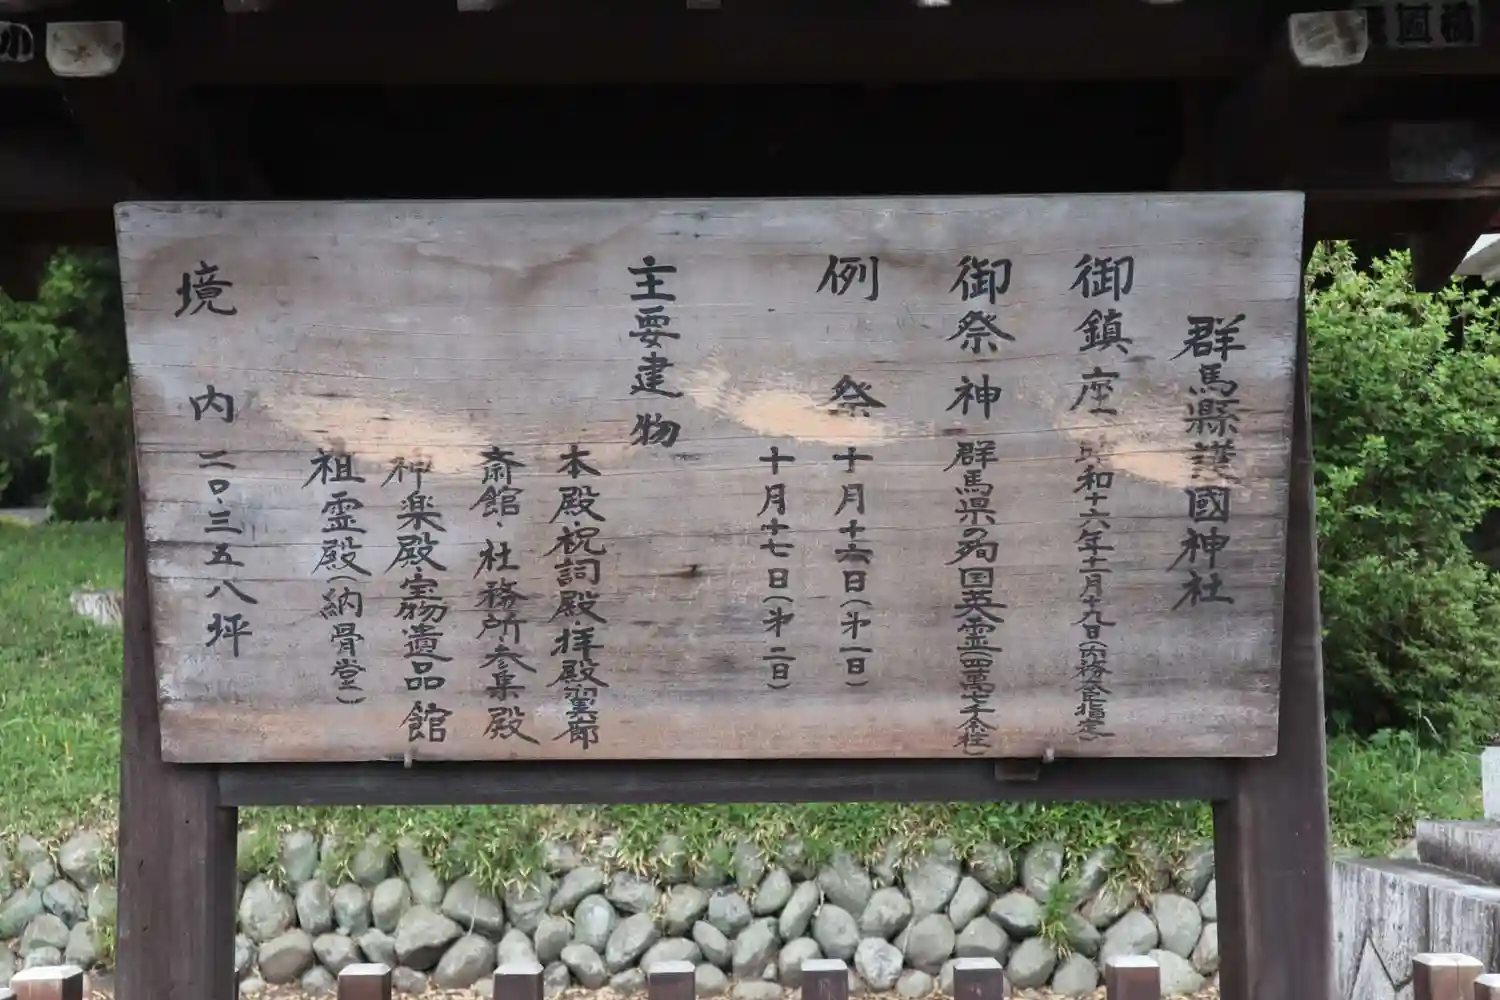 群馬縣護國神社
御鎮座 昭和十六年十一月十九日(内務大臣指定)
御祭神 群馬県の殉国英霊(四萬七千余柱)
例祭 十月十六日(第一日)
十月十七日(第二日)
主要建物
本殿・祝詞殿・拝殿翼廊
斎館・社務所参集殿
神楽殿宝物遺品館
祖霊殿(納骨堂)
境内 二〇・三五八坪